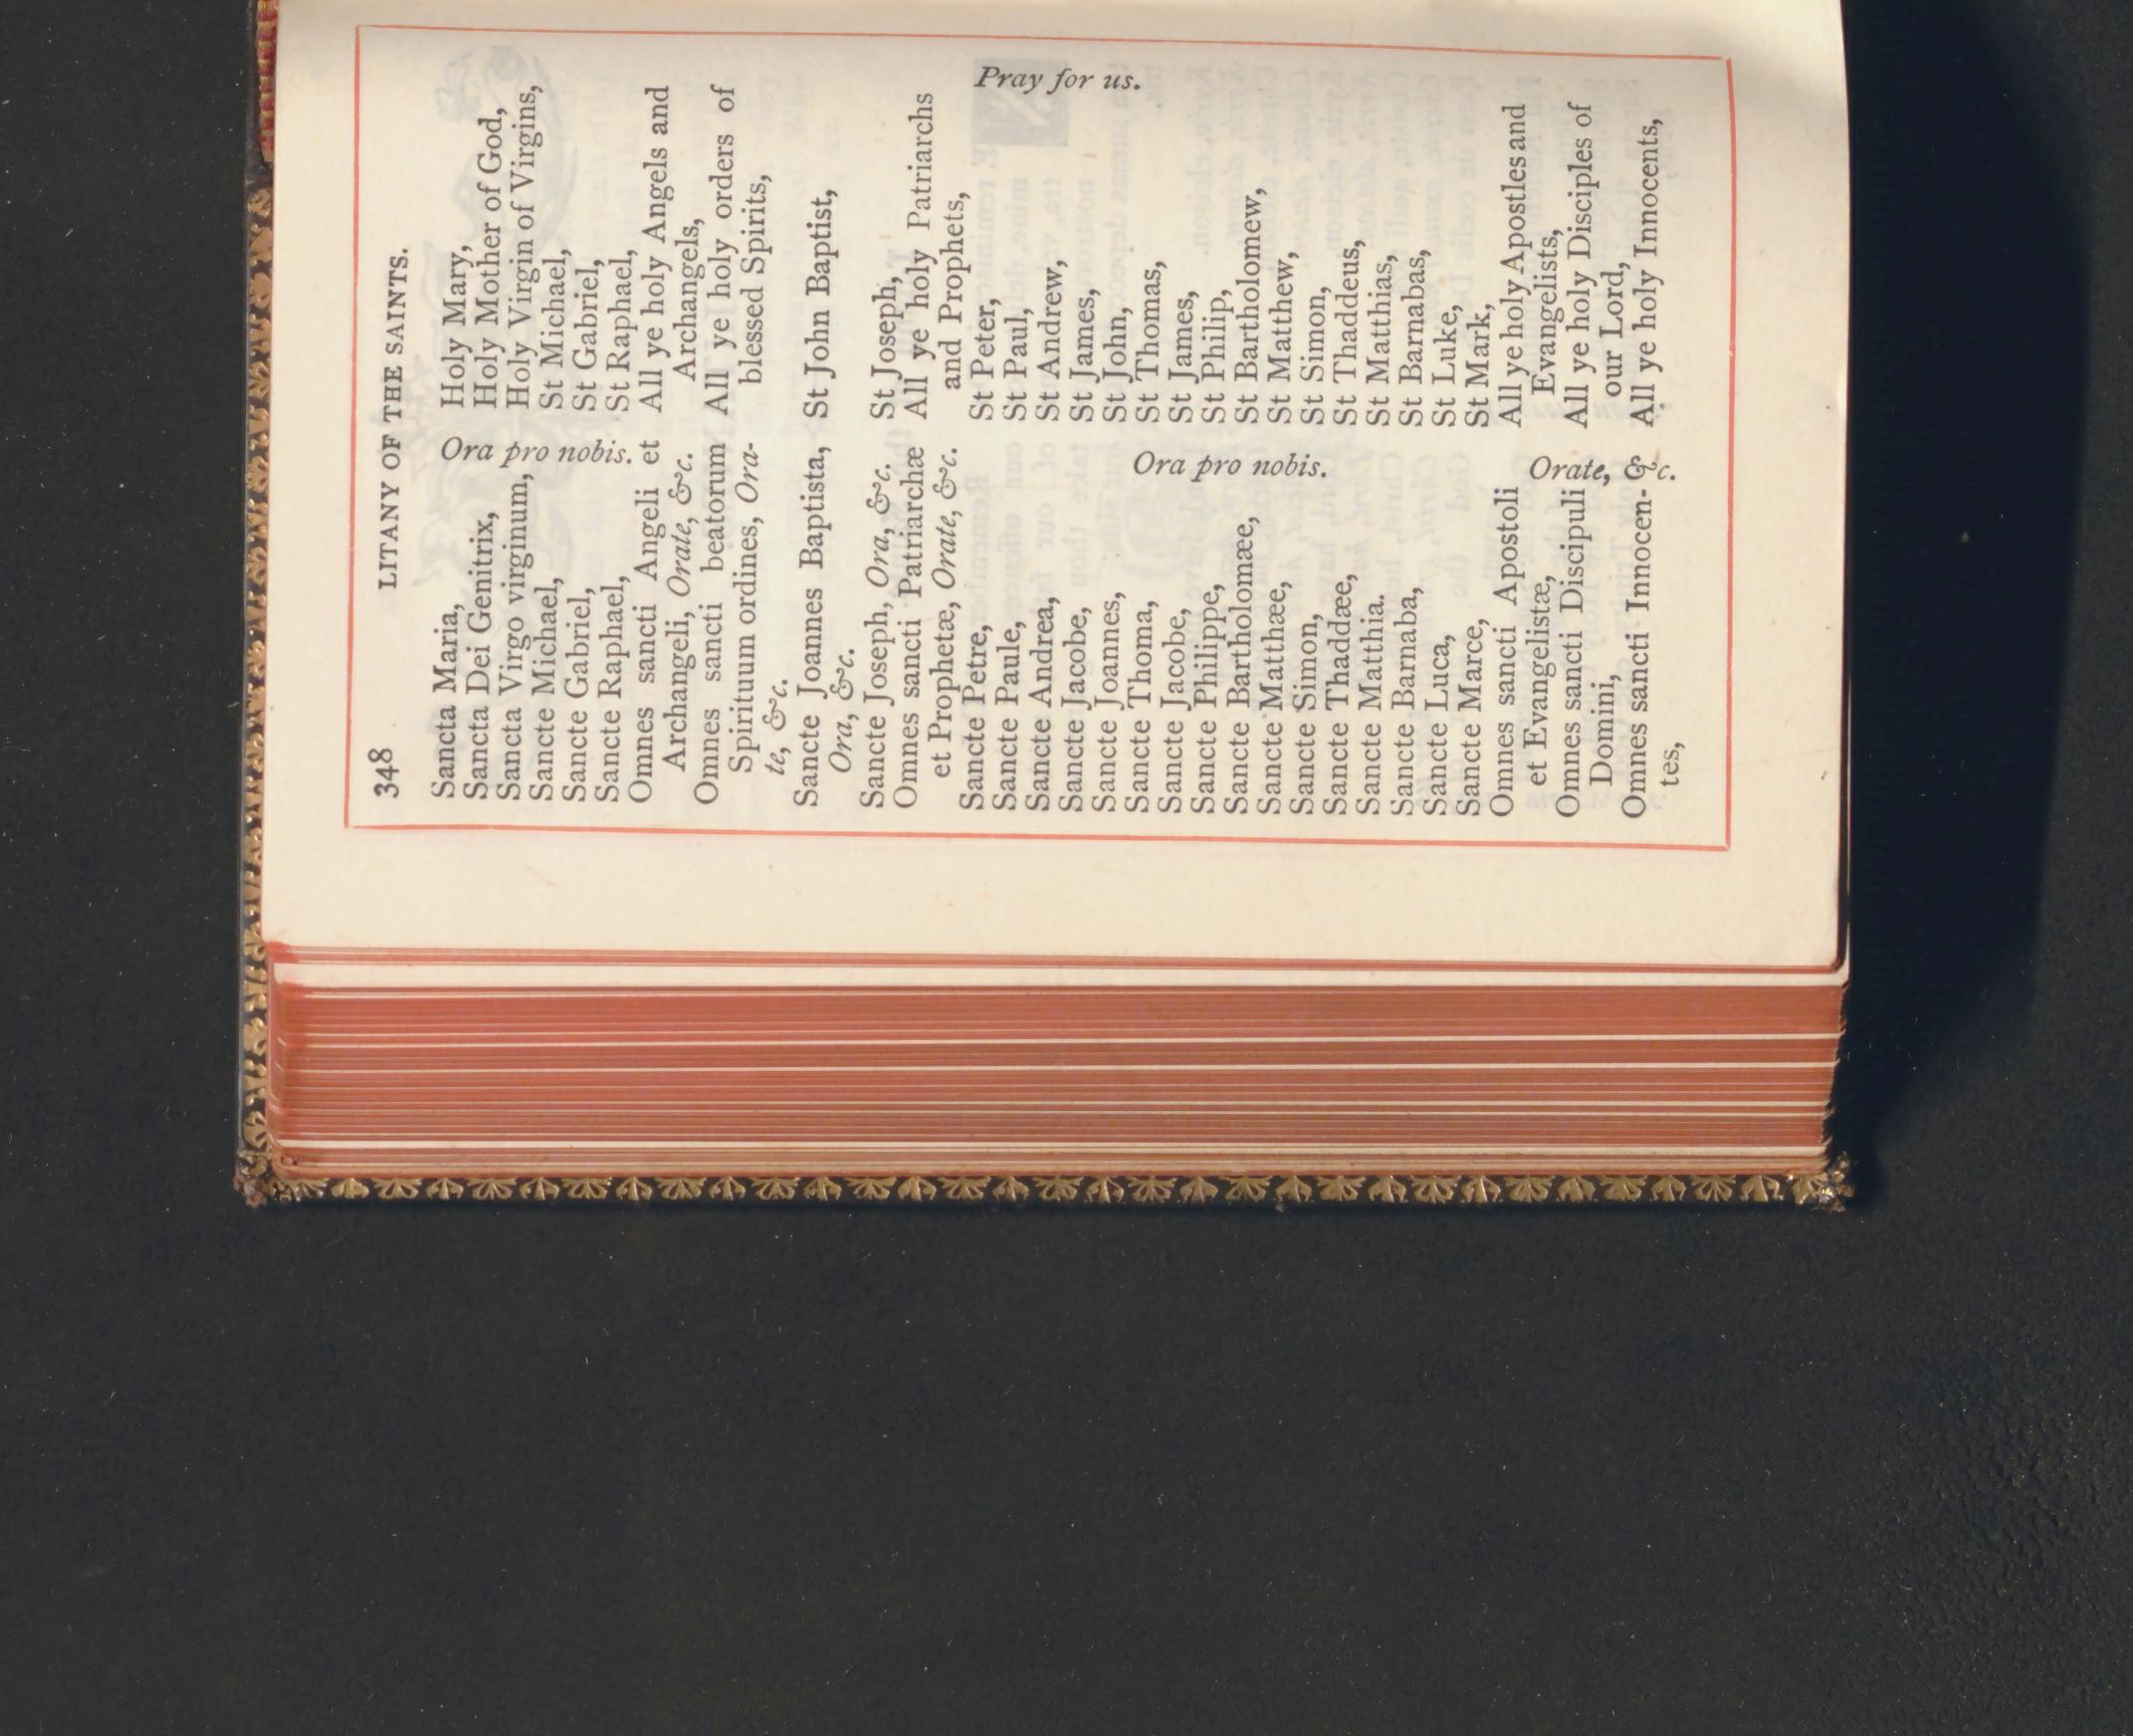 348 LITANY OF THE SAINTS.
Sancta Maria,
Sancta Dei Genitrix,
Sancta Virgo virginum,
Sancte Michael,
Sancte Gabriel,
Sancte Raphael,
Ora pro nobis.
Omnes sancti Angeli et
Archangeli, Orate, &c.
Omnes sancti beatorum
Spirituum ordines, Ora-
te, &c.
Sancte Joannes Baptista,
Ora, &c.
Sancte Joseph, Ora, &c.
Omnes sancti Patriarchæ
et Prophetæ, Orate, &c.
Sancte Petre,
Sancte Paule,
Sancte Andrea,
Sancte Jacobe,
Sancte Joannes,
Sancte Thoma,
Sancte Jacobe,
Sancte Philippe,
Sancte Bartholomæe,
Sancte Matthæe,
Sancte Simon,
Sancte Thaddæe,
Sancte Matthia.
Sancte Barnaba,
Sancte Luca,
Sancte Marce,
Ora pro nobis.
Omnes sancti Apostoli
et Evangelistæ,
Omnes sancti Discipuli
Domini,
Omnes sancti Innocen-
tes,
Orate, &c.
Holy Mary,
Holy Mother of God,
Holy Virgin of Virgins,
St Michael,
St Gabriel,
St Raphael,
All ye holy Angels and
Archangels,
All ye holy orders of
blessed Spirits,
St John Baptist,
St Joseph,
All ye holy Patriarchs
and Prophets,
St Peter,
St Paul,
St Andrew,
St James,
St John,
St Thomas,
St James,
St Philip,
St Bartholomew,
St Matthew,
St Simon,
St Thaddeus,
St Matthias,
St Barnabas,
St Luke,
St Mark,
All ye holy Apostles and
Evangelists,
All ye holy Disciples of
our Lord,
All ye holy Innocents,
Pray for us.